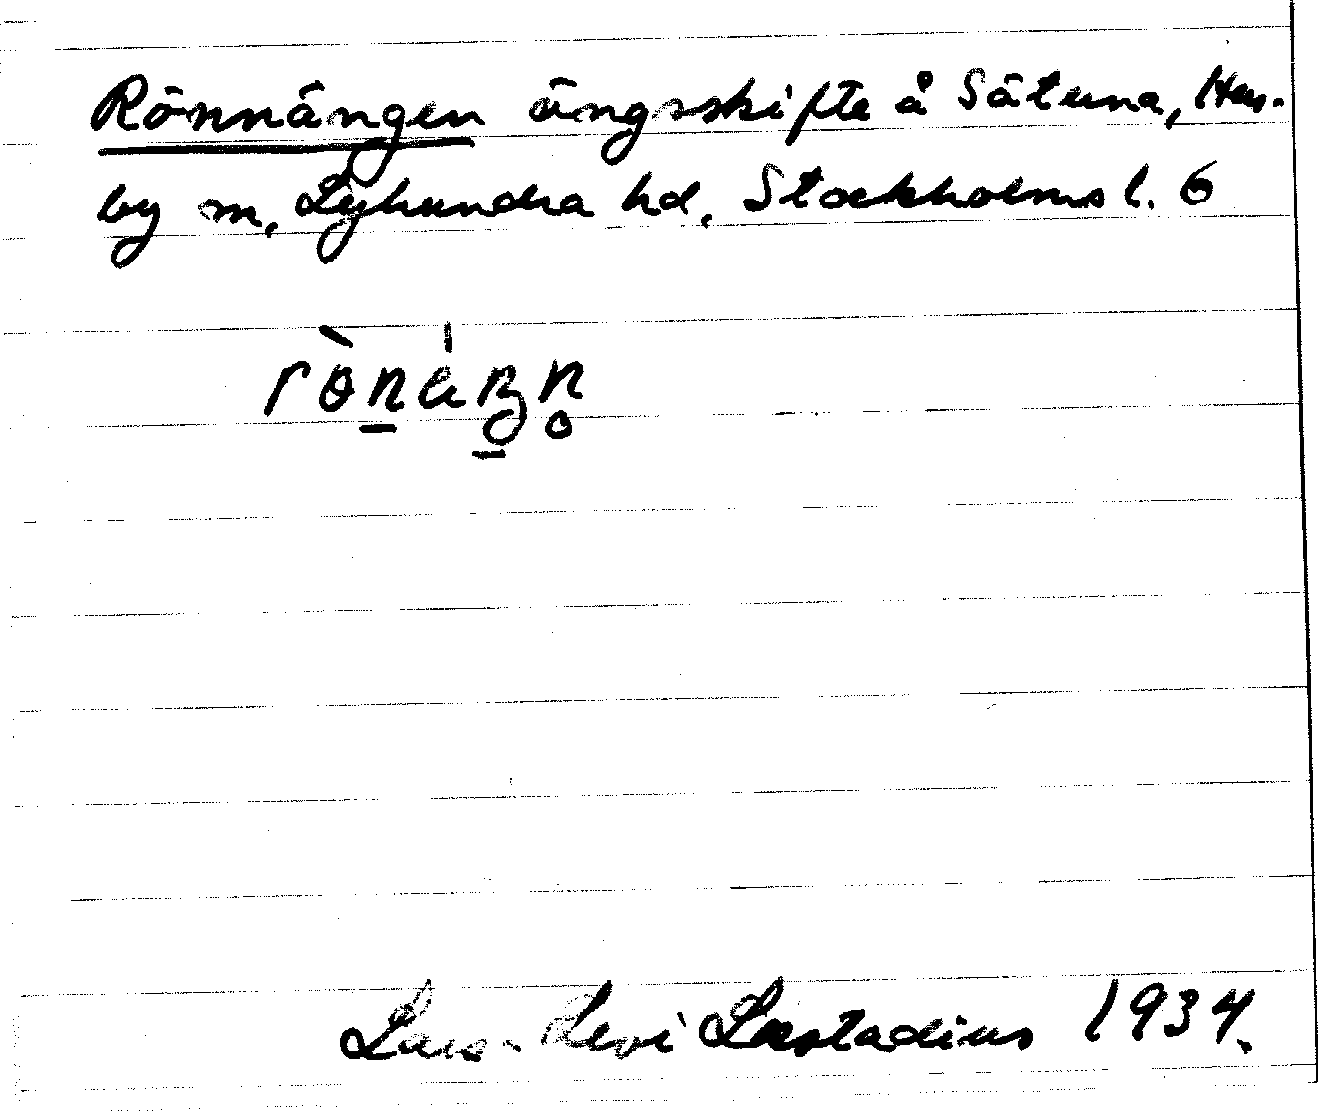 Rönnängen ängsskifte å Sätuna, Hus-
by m, Lyhundra hd, Stockholms l. 6
Lars-Levi Læstadius 1934.